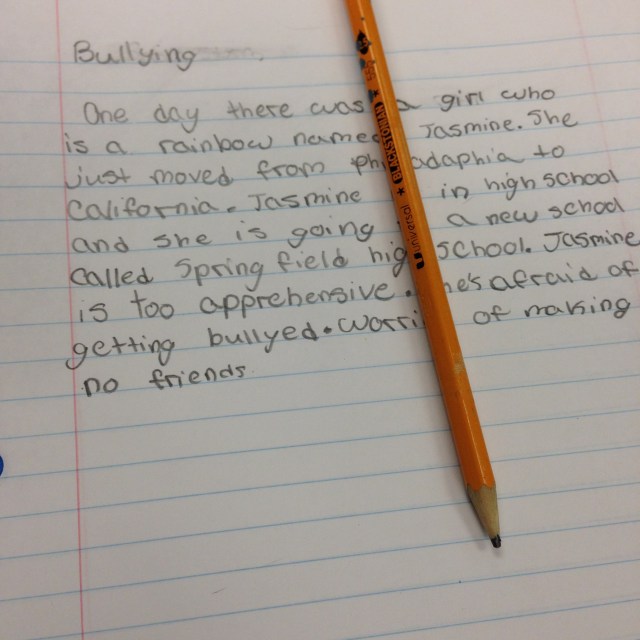 Bullying
One day there was a girl who
is a rainbow named Jasmine. She
just moved from philadaphia to
California. Jasmine in high school
and she is going a new school
called Springfield high school. Jasmine
is too apprehensive. She's afraid of
getting bullyed. Worri of making
no friends.
BLACKSTONIAN
universal